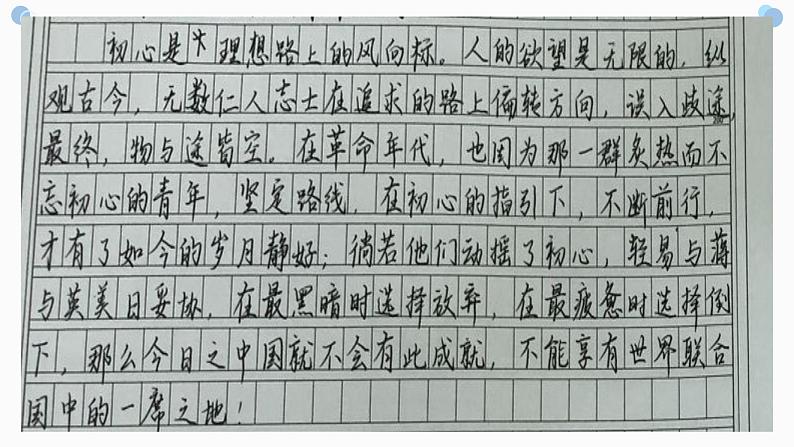 初心是理想路上的风向标。人的欲望是无限的，纵
观古今，无数仁人志士在追求的路上偏转方向，误入歧途，
最终，物与途皆空。在革命年代，也因为那一群炙热而不
忘初心的青年，坚定路线，在初心的指引下，不断前行，
才有了如今的岁月静好；倘若他们动摇了初心，轻易与蒋
与英美日妥协，在最黑暗时选择放弃，在最疲惫时选择倒
下，那么今日之中国就不会有此成就，不能享有世界联合
国中的一席之地！